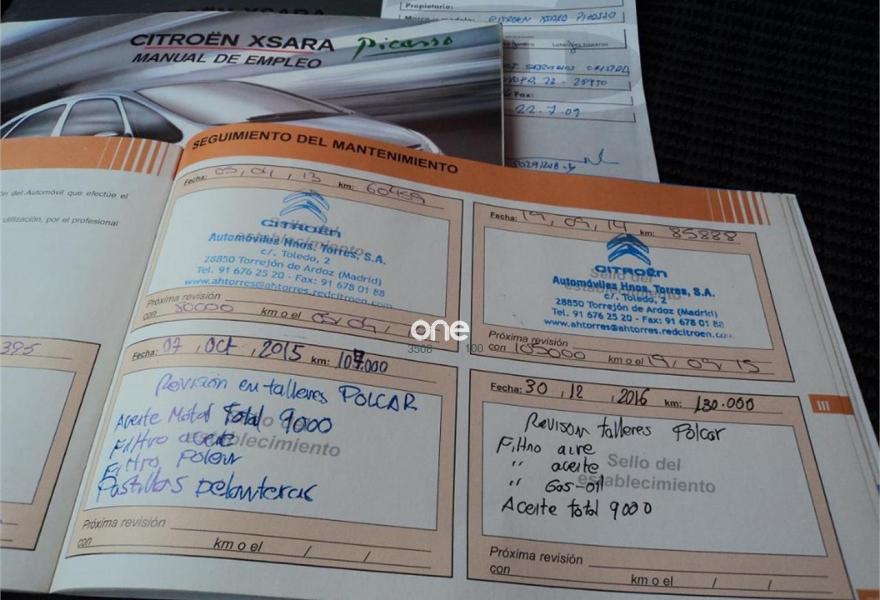 CITROËN XSARA Picasso
MANUAL DE EMPLEO
Propietario:
CITROEN XSARA PICASSO
Fax:
22-7-09
SEGUIMIENTO DEL MANTENIMIENTO
ón del Automóvil que efectúe el
utilización, por el profesional
395
Fecha: 03, 04, 13 km: 60459
Sello del
establecimiento
CITROËN
Automóviles Hnos. Torres, S.A.
c/. Toledo, 2
28850 Torrejón de Ardoz (Madrid)
Tel. 91 676 25 20 - Fax: 91 678 01 88
www.ahtorres@ahtorres.redcitroen.com
Próxima revisión
con 80000 km o el 03/04/
Fecha: 19, 09, 14 km: 85888
Sello del
establecimiento
CITROËN
Automóviles Hnos. Torres, S.A.
c/. Toledo, 2
28850 Torrejón de Ardoz (Madrid)
Tel. 91 676 25 20 - Fax: 91 678 01 88
www.ahtorres@ahtorres.redcitroen.com
Próxima revisión
con 105000 km o el 19/09/15
one
3508 100
Fecha: 07, Oct, 2015 km: 107.000
Revisión en talleres POLCAR
Aceite Motor Total 9000
Filtro aceite
Filtro Polen
Pastillas Delanteras
Sello del
establecimiento
Próxima revisión
con km o el / /
Fecha: 30, 12, 2016 km: 130.000
Revison talleres Polcar
Filtro aire
" aceite
" Gas-oil
Aceite total 9000
Sello del
establecimiento
Próxima revisión
con km o el / /
III